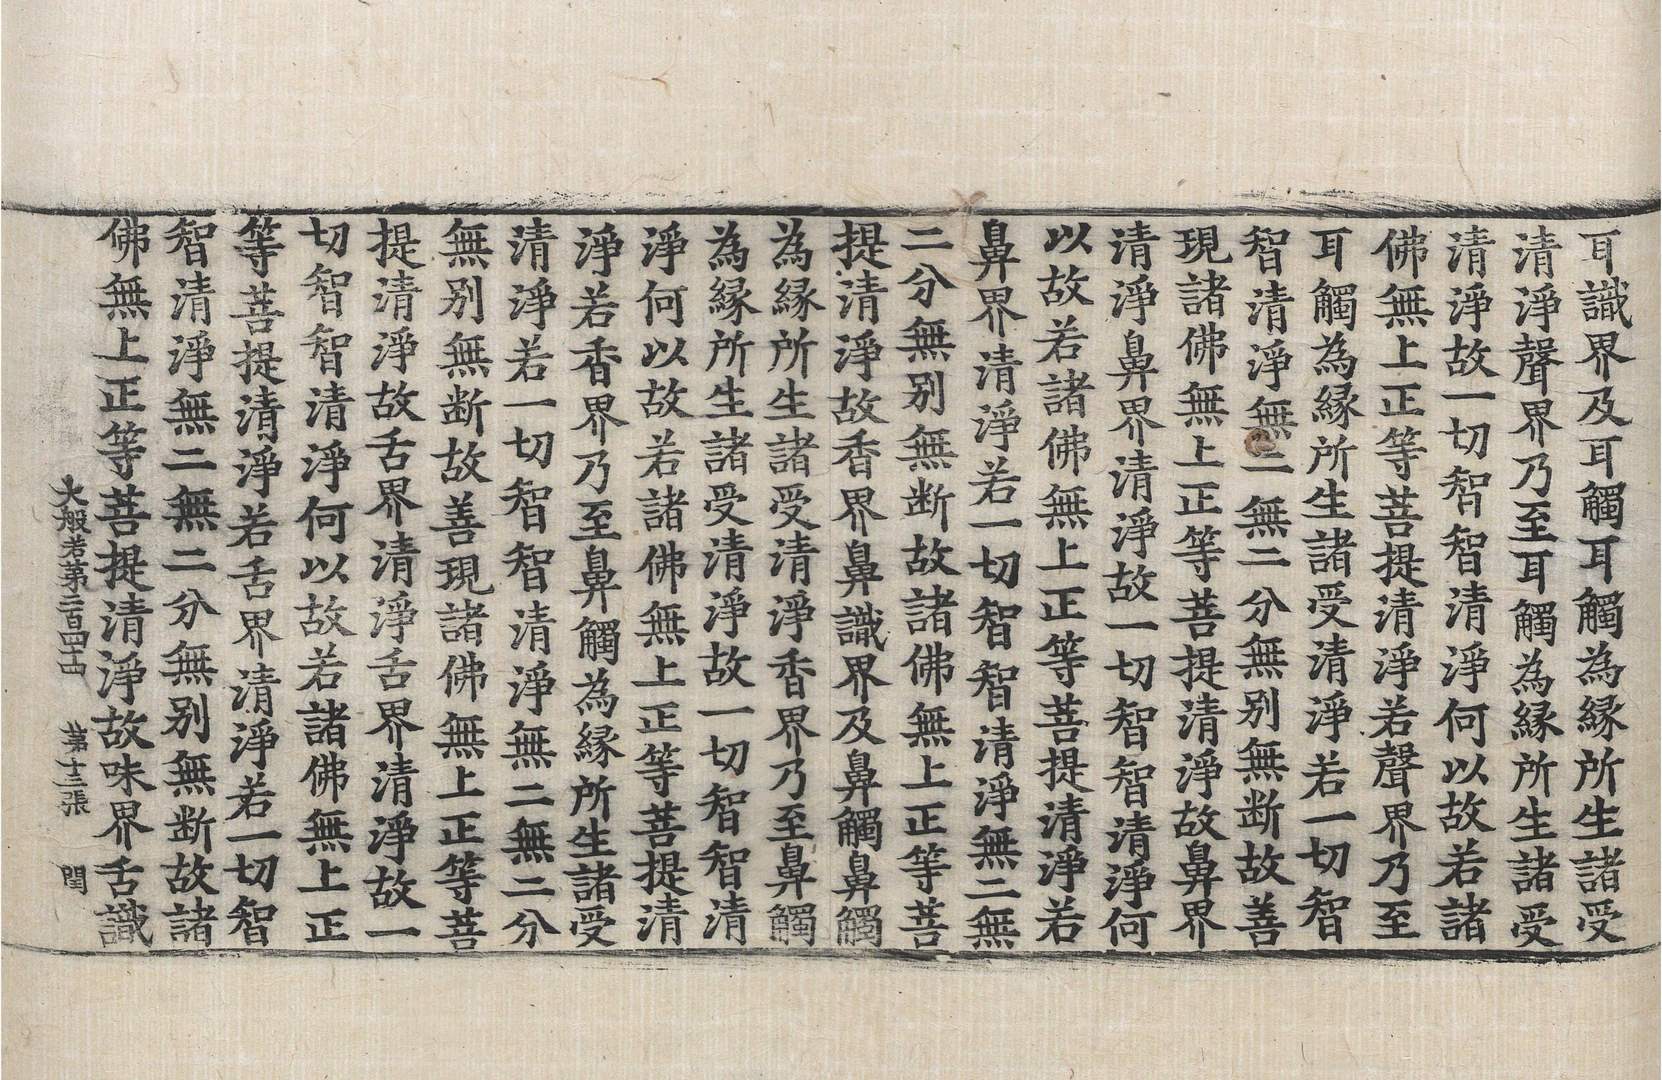 耳識界及耳觸耳觸為縁所生諸受
清淨聲界乃至耳觸為縁所生諸受
清淨故一切智智清淨何以故若諸
佛無上正等菩提清淨若聲界乃至
耳觸為縁所生諸受清淨若一切智
智清淨無二無二分無别無断故善
現諸佛無上正等菩提清淨故鼻界
清淨鼻界清淨故一切智智清淨何
以故若諸佛無上正等菩提清淨若
鼻界清淨若一切智智清淨無二無
二分無别無断故諸佛無上正等菩
提清淨故香界鼻識界及鼻觸鼻觸
為縁所生諸受清淨香界乃至鼻觸
為縁所生諸受清淨故一切智智清
淨何以故若諸佛無上正等菩提清
淨若香界乃至鼻觸為縁所生諸受
清淨若一切智智清淨無二無二分
無别無断故善現諸佛無上正等菩
提清淨故舌界清淨舌界清淨故一
切智智清淨何以故若諸佛無上正
等菩提清淨若舌界清淨若一切智
智清淨無二無二分無别無断故諸
佛無上正等菩提清淨故味界舌識
大般若第二百四十四 第十三張 閏